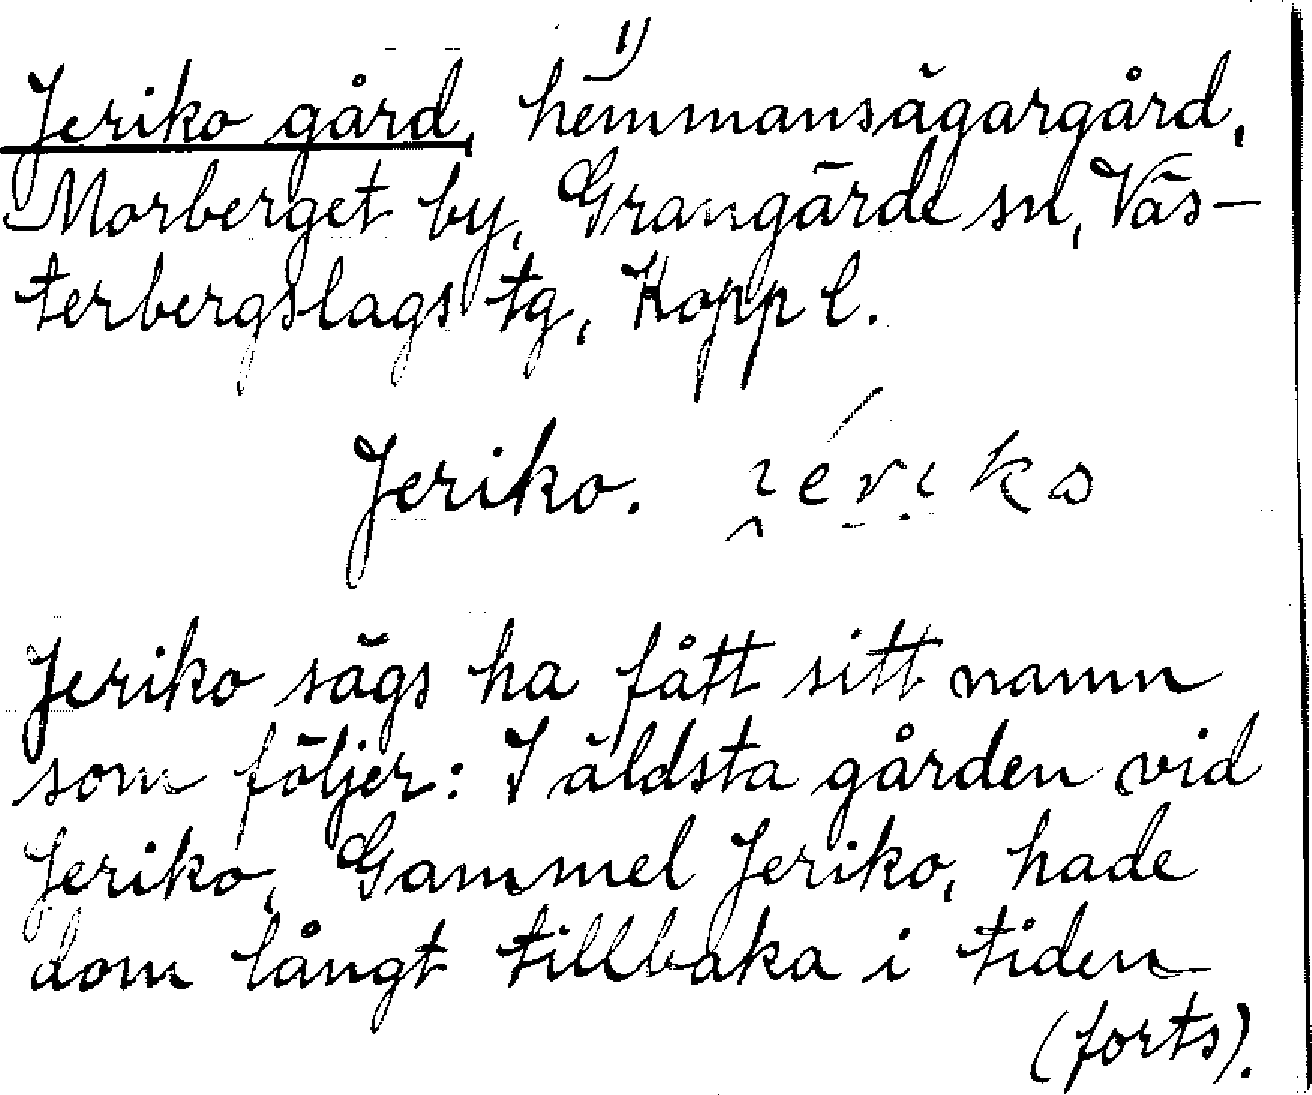 1)
Jeriko gård, hemmansägargård,
Morberget by, Grangärde sn, Väs-
terbergslags tg, Kopp l.
Jeriko.
Jeriko sägs ha fått sitt namn
som följer: I äldsta gården vid
Jeriko, Gammel Jeriko, hade
dom långt tillbaka i tiden
(forts).